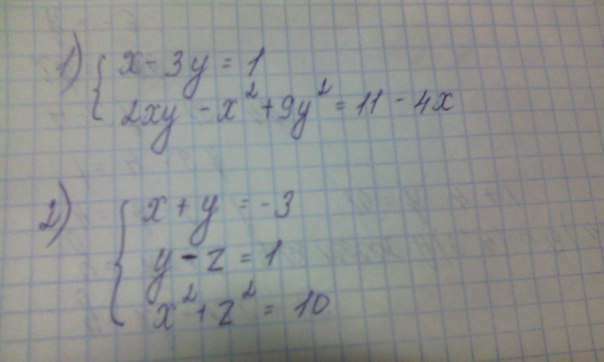 1) { x - 3y = 1
2xy - x² + 9y² = 11 - 4x
2) { x + y = -3
y - z = 1
x² + z² = 10